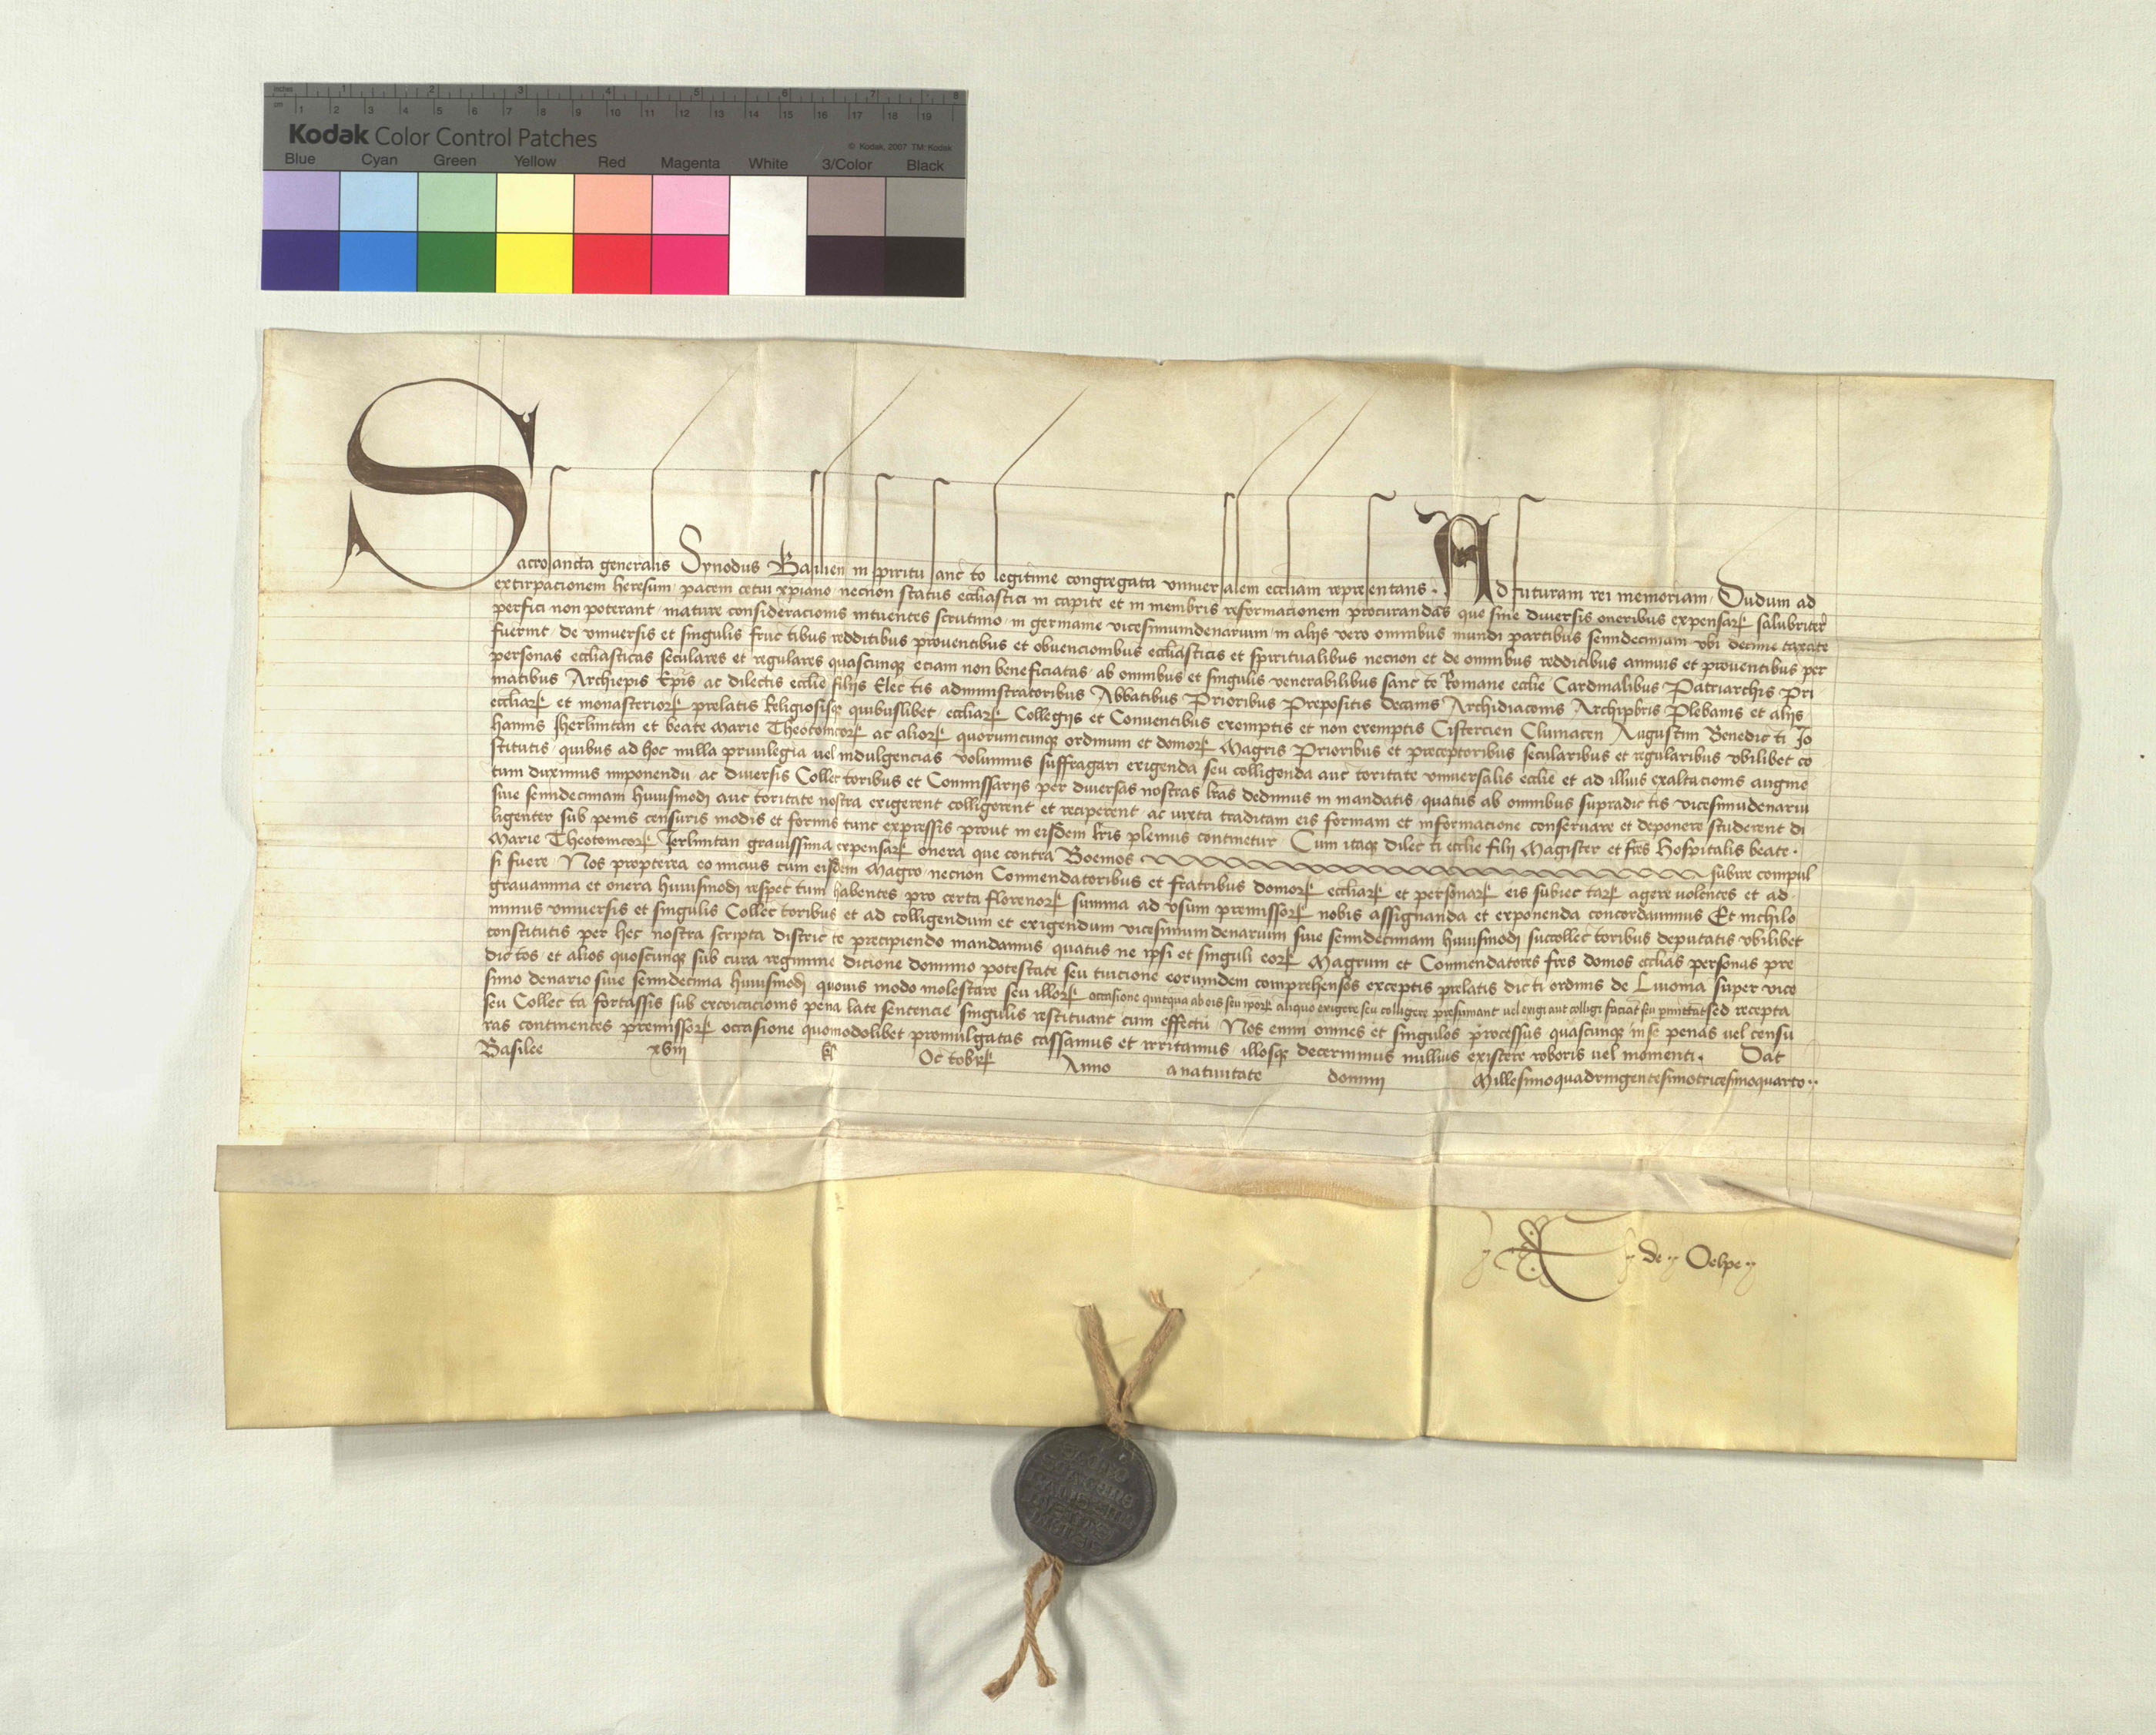 inches 1 2 3 4 5 6 7 8
cm 1 2 3 4 5 6 7 8 9 10 11 12 13 14 15 16 17 18 19
Kodak Color Control Patches © Kodak, 2007 TM: Kodak
Blue Cyan Green Yellow Red Magenta White 3/Color Black
Sacrosancta generalis Synodus Basilien in spiritu sancto legitime congregata universalem eccliam representans. Ad futuram rei memoriam Dudum ad
extirpacionem heresum pacem cetui xpiano necnon status ecclïastici in capite et in membris reformacionem procurandas que sine diversis oneribus expensarꝝ salubriter
perfici non poterant mature consideracionis intuentes scrutinio in germanie vicesimumdenarium in alijs vero omnibus mundi partibus semidecimam ubi decime taxate
fuerint de universis et singulis fructibus redditibus proventibus et obvencionibus ecclïasticis et spiritualibus necnon et de omnibus redditibus annuis et proventibus per
personas eccliasticas seculares et regulares quascunqꝫ eciam non beneficiatas ab omnibus et singulis venerabilibus sancte Romane ecclie Cardinalibus Patriarchis Pri
matibus Archiepis Epis ac dilectis ecclie filijs Electis administratoribus Abbatibus Prioribus Prepositis Decanis Archidiaconis Archipbris Plebanis et alijs
eccliarꝝ et monasteriorꝝ prelatis Religiosisqꝫ quibuslibet eccliarꝝ Collegijs et Conventibus exemptis et non exemptis Cistercien Cluniacen Augustini Benedicti Jo
hannis Jherlimitan et beate Marie Theotonicorꝝ ac aliorꝝ quorumcunqꝫ ordinum et domorꝝ Magris Prioribus et preceptoribus secularibus et regularibus ubilibet co
stitutis quibus ad hoc nulla privilegia vel indulgencias volumus suffragari exigenda seu colligenda auctoritate universalis ecclie et ad illius exaltacionis augme
tum duximus imponendu ac diversis Collectoribus et Commissarijs per diversas nostras lras dedimus in mandatis quatus ab omnibus supradictis vicesimudenariu
sive semidecimam huiusmodi auctoritate nostra exigerent colligerent et reciperent ac iuxta traditam eis formam et informacione conservare et deponere studerent di
ligenter sub penis censuris modis et formis tunc expressis prout in eisdem lris plenius continetur Cum itaqꝫ dilecti ecclie filij Magister et fres Hospitalis beate
Marie Theotonicorꝝ Jerlimitan gravissima expensarꝝ onera que contra Boemos subire compul
si fuere Nos propterea eo micius cum eisdem Magro necnon Commendatoribus et fratribus domorꝝ eccliarꝝ et personarꝝ eis subiectarꝝ agere volentes et ad
gravamina et onera huiusmodi respectum habentes pro certa florenorꝝ summa ad usum premissorꝝ nobis assignanda et exponenda concordavimus Et nichilo
minus universis et singulis Collectoribus et ad colligendum et exigendum vicesimumdenarium sive semidecimam huiusmodi succollectoribus deputatis ubilibet
constitutis per hec nostra scripta districte precipiendo mandamus quatus ne ipsi et singuli eorꝝ Magrum et Commendatores fres domos ecclias personas pre
dictos et alios quoscunqꝫ sub cura regimine dicione dominio potestate seu tuicione eorumdem comprehensos exceptis prelatis dicti ordinis de Livonia super vice
simo denario sive semidecima huiusmodi quovis modo molestare seu illorꝝ occasione quitqua ab eis seu iporꝝ aliquo exigere seu colligere presumant vel exigi aut colligi faciat seu permittat sed recepta
seu Collecta fortassis sub excoicacionis pena late sentencie singulis restituant cum effectu Nos enim omnes et singulos processus quascunqꝫ in se penas vel censu
ras continentes premissorꝝ occasione quomodolibet promulgatas cassamus et irritamus illosqꝫ decernimus nullius existere roboris vel momenti. Dat
Basilee xviij kl Octobrꝝ Anno a nativitate domini Millesimoquadringentesimotricesimoquarto
de Oelpe